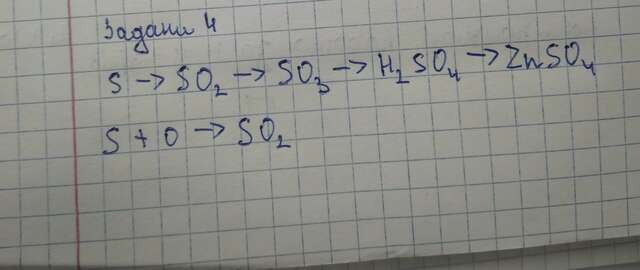 Задани 4
S → SO₂ → SO₃ → H₂SO₄ → ZnSO₄
S + O → SO₂